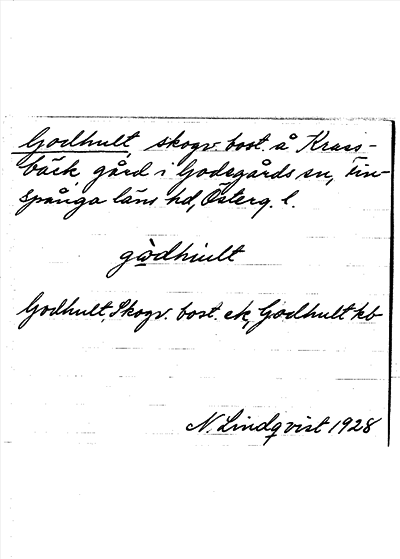 Godhult, skogv. bost. å Krass-
bäck, gård i Godegårds sn, Fin-
spånga läns hd, Österg. l.
gòdhult
Godhult, Skogv. bost. ek, Godhult kb
N. Lindqvist 1928